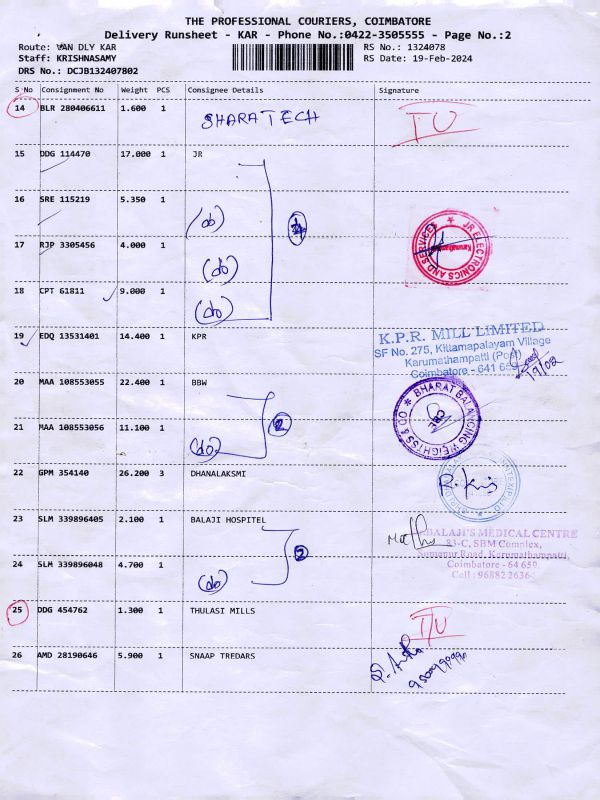 THE PROFESSIONAL COURIERS, COIMBATORE
Delivery Runsheet - KAR - Phone No.:0422-3505555 - Page No.:2
Route: VAN DLY KAR RS No.: 1324078
Staff: KRISHNASAMY RS Date: 19-Feb-2024
DRS No.: DCJB132407802
S No Consignment No Weight PCS Consignee Details Signature
14 BLR 280406611 1.600 1 SHARA TECH TU
15 DDG 114470 17.000 1 JR
16 SRE 115219 5.350 1 (do)
17 RJP 3305456 4.000 1 (do) JR ELECTRONICS AND SERVICES
18 CPT 61811 9.000 1 (do)
19 EDQ 13531401 14.400 1 KPR K.P.R. MILL LIMITED
SF No. 275, Kittamapalayam Village
Karumathampatti (Post)
Coimbatore - 641 659
19/02
20 MAA 108553055 22.400 1 BBW BHARAT BALANCING WEIGHTSS & CO
21 MAA 108553056 11.100 1 (do) 2 CBE
22 GPM 354140 26.200 3 DHANALAKSMI
23 SLM 339896405 2.100 1 BALAJI HOSPITEL BALAJI'S MEDICAL CENTRE
83-C, SBM Complex,
Somanur Road, Karumathampatti,
24 SLM 339896048 4.700 1 (do) 2 Coimbatore - 64 659
Cell : 96882 26364
25 DDG 454762 1.300 1 THULASI MILLS T/U
26 AMD 28190646 5.900 1 SNAAP TREDARS